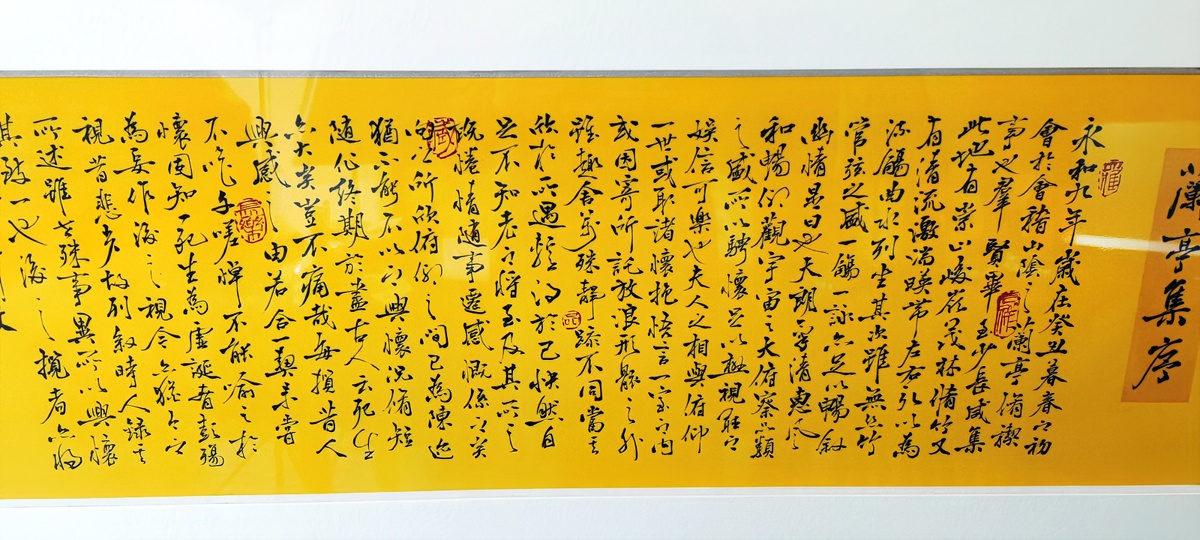 蘭亭集序
永和九年歲在癸丑暮春之初
會於會稽山陰之蘭亭脩禊
事也羣賢畢至少長咸集
此地有崇山峻嶺茂林脩竹又
有清流激湍暎帶左右引以為
流觴曲水列坐其次雖無絲竹
管弦之盛一觴一詠亦足以暢敘
幽情是日也天朗氣清惠風
和暢仰觀宇宙之大俯察品類
之盛所以騁懷足以極視聽之
娛信可樂也夫人之相與俯仰
一世或取諸懷抱悟言一室之內
或因寄所託放浪形骸之外
雖趣舍萬殊靜躁不同當其
欣於所遇暫得於己快然自
足不知老之將至及其所之
既惓情隨事遷感慨係之矣
向之所欣俯仰之間已為陳迹
猶不能不以之興懷況脩短
隨化終期於盡古人云死生
亦大矣豈不痛哉每攬昔人
興感之由若合一契未嘗
不臨文嗟悼不能喻之於
懷固知一死生為虛誕齊彭殤
為妄作後之視今亦猶今之
視昔悲夫故列敘時人錄其
所述雖世殊事異所以興懷
其致一也後之攬者亦將